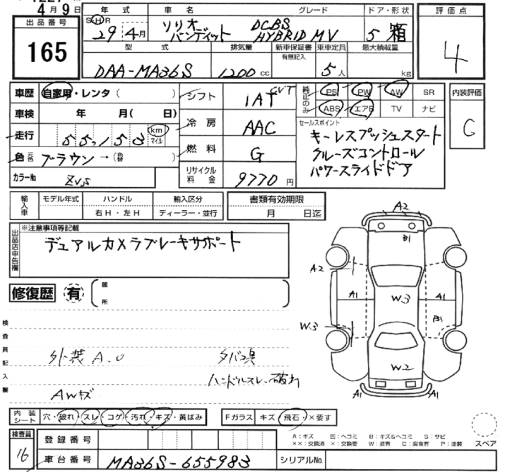 4月9日
出品番号
165
年式 車名 グレード ドア・形状
SHR 29年 4月 ソリオ バンディット DCBS HYBRID MV 5 箱
型式 排気量 新車保証書 有無記入 乗車定員 最大積載量
DAA-MA36S 1200cc 5人 kg
評価点
4
車歴 自家用・レンタ( )
車検 年 月( )
走行 55,153 km マイル
色 元色 ブラウン→(替)
カラーNo. ZV5
シフト 1AT CVT
冷房 AAC
燃料 G
リサイクル料金 9770円
純正のみ PS PW AW SR
ABS エアB TV ナビ
セールスポイント
キーレスプッシュスタート
クルーズコントロール
パワースライドドア
内装評価
C
輸入車 モデル年式 ハンドル 輸入区分
年 右H・左H ディーラー・並行
書類有効期限
月 日迄
出品店申告欄
※注意事項等記載
デュアルカメラブレーキサポート
修復歴 有 箇所
検査員記入欄
外装A.U タバコ臭
ハンドルスレ
AWキズ
A2
B1
A2 A1 A1
W3
W3 B1
W2
A2
内装シート 穴・破れ・スレ・コゲ・汚れ・キズ・黄ばみ Fガラス キズ・飛石・×要す
A:キズ E:ヘコミ B:キズ&ヘコミ S:サビ
××:交換済 ×:交換要 W:波者 C:腐食有 P:塗装
スペア
検査員 16
登録番号
車台番号 MA36S-655983 シリアルNo.